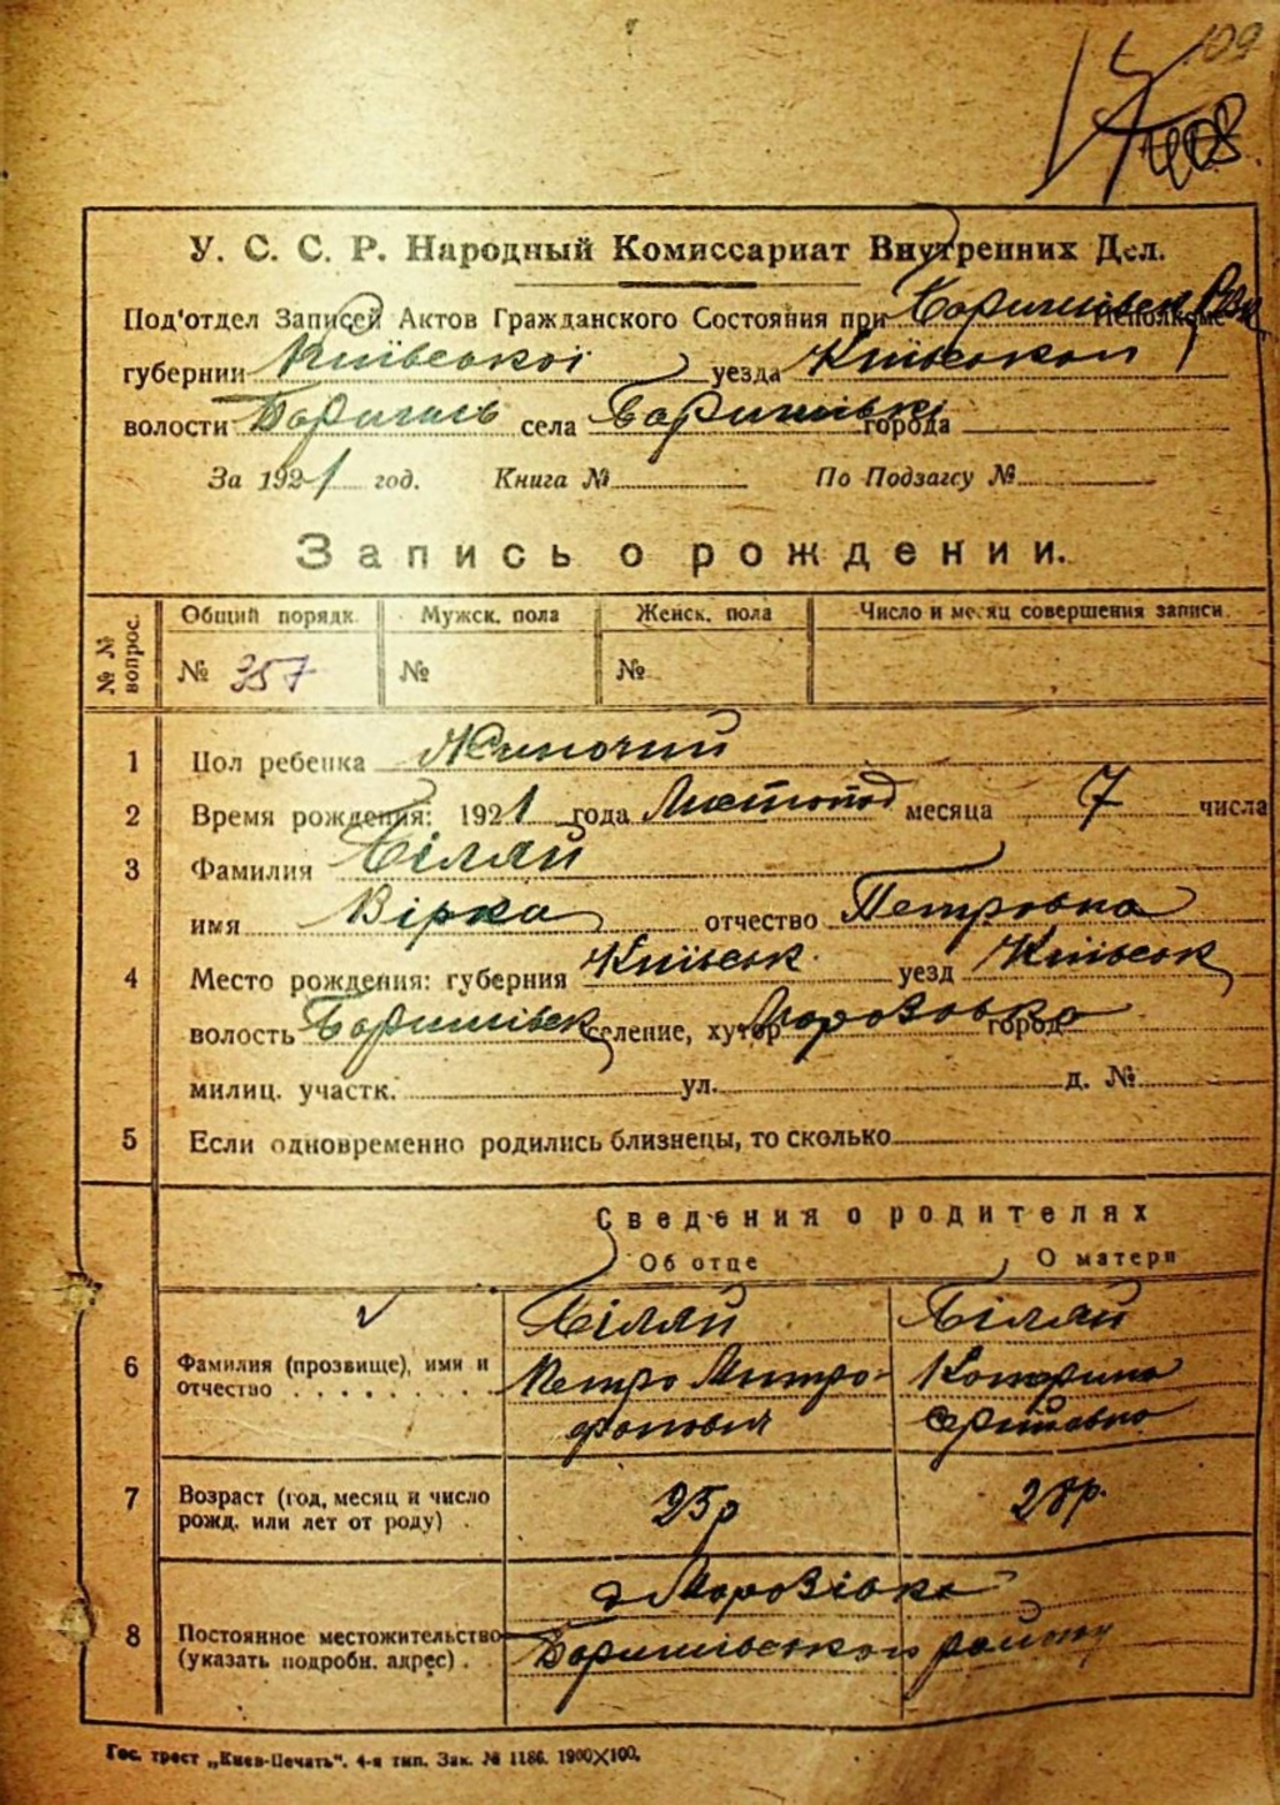 109
408
У. С. С. Р. Народный Комиссариат Внутренних Дел.
Под'отдел Записей Актов Гражданского Состояния при Баришівськ Исполкоме
губернии Київської уезда Київськой
волости Бориспіль села Баришівкі города
За 1921 год. Книга № По Подзагсу №
Запись о рождении.
№ № вопрос. Общий порядк. Мужск. пола Женск. пола Число и месяц совершения записи.
№ 357 № №
1 Пол ребенка Жиночий
2 Время рождения: 1921 года Листопад месяца 7 числа
3 Фамилия Біляй
имя Вірка отчество Петровна
4 Место рождения: губерния Київськ. уезд Київськ
волость Баришівськ селение, хутор Морозовка город
милиц. участк. ул. д. №
5 Если одновременно родились близнецы, то сколько
Сведения о родителях
Об отце О матери
Біляй Біляй
6 Фамилия (прозвище), имя и отчество Петро Митрофанович Катерина
7 Возраст (год, месяц и число рожд. или лет от роду) 25р 28р.
с Морозівка
8 Постоянное местожительство (указать подробн. адрес). Баришівського району
Гос. трест „Киев-Печать“. 4-я тип. Зак. № 1186. 1900×100.